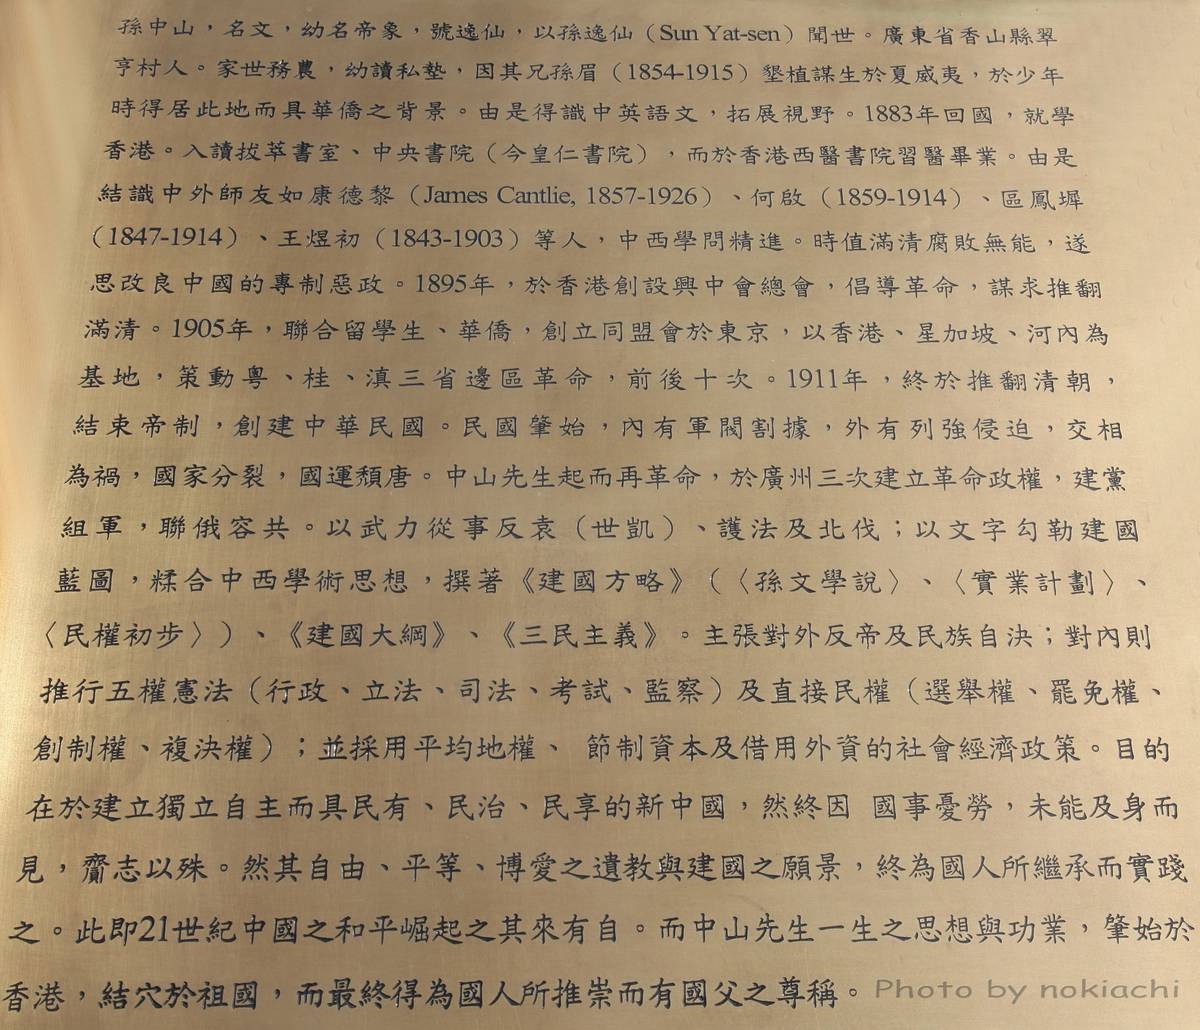 孫中山，名文，幼名帝象，號逸仙，以孫逸仙（Sun Yat-sen）聞世。廣東省香山縣翠
亨村人。家世務農，幼讀私塾，因其兄孫眉（1854-1915）墾植謀生於夏威夷，於少年
時得居此地而具華僑之背景。由是得識中英語文，拓展視野。1883年回國，就學
香港。入讀拔萃書室、中央書院（今皇仁書院），而於香港西醫書院習醫畢業。由是
結識中外師友如康德黎（James Cantlie, 1857-1926）、何啟（1859-1914）、區鳳墀
（1847-1914）、王煜初（1843-1903）等人，中西學問精進。時值滿清腐敗無能，遂
思改良中國的專制惡政。1895年，於香港創設興中會總會，倡導革命，謀求推翻
滿清。1905年，聯合留學生、華僑，創立同盟會於東京，以香港、星加坡、河內為
基地，策動粵、桂、滇三省邊區革命，前後十次。1911年，終於推翻清朝，
結束帝制，創建中華民國。民國肇始，內有軍閥割據，外有列強侵迫，交相
為禍，國家分裂，國運頹唐。中山先生起而再革命，於廣州三次建立革命政權，建黨
組軍，聯俄容共。以武力從事反袁（世凱）、護法及北伐；以文字勾勒建國
藍圖，糅合中西學術思想，撰著《建國方略》（〈孫文學說〉、〈實業計劃〉、
〈民權初步〉）、《建國大綱》、《三民主義》。主張對外反帝及民族自決；對內則
推行五權憲法（行政、立法、司法、考試、監察）及直接民權（選舉權、罷免權、
創制權、複決權）；並採用平均地權、 節制資本及借用外資的社會經濟政策。目的
在於建立獨立自主而具民有、民治、民享的新中國，然終因 國事憂勞，未能及身而
見，齎志以殊。然其自由、平等、博愛之遺教與建國之願景，終為國人所繼承而實踐
之。此即21世紀中國之和平崛起之其來有自。而中山先生一生之思想與功業，肇始於
香港，結穴於祖國，而最終得為國人所推崇而有國父之尊稱。
Photo by nokiachi